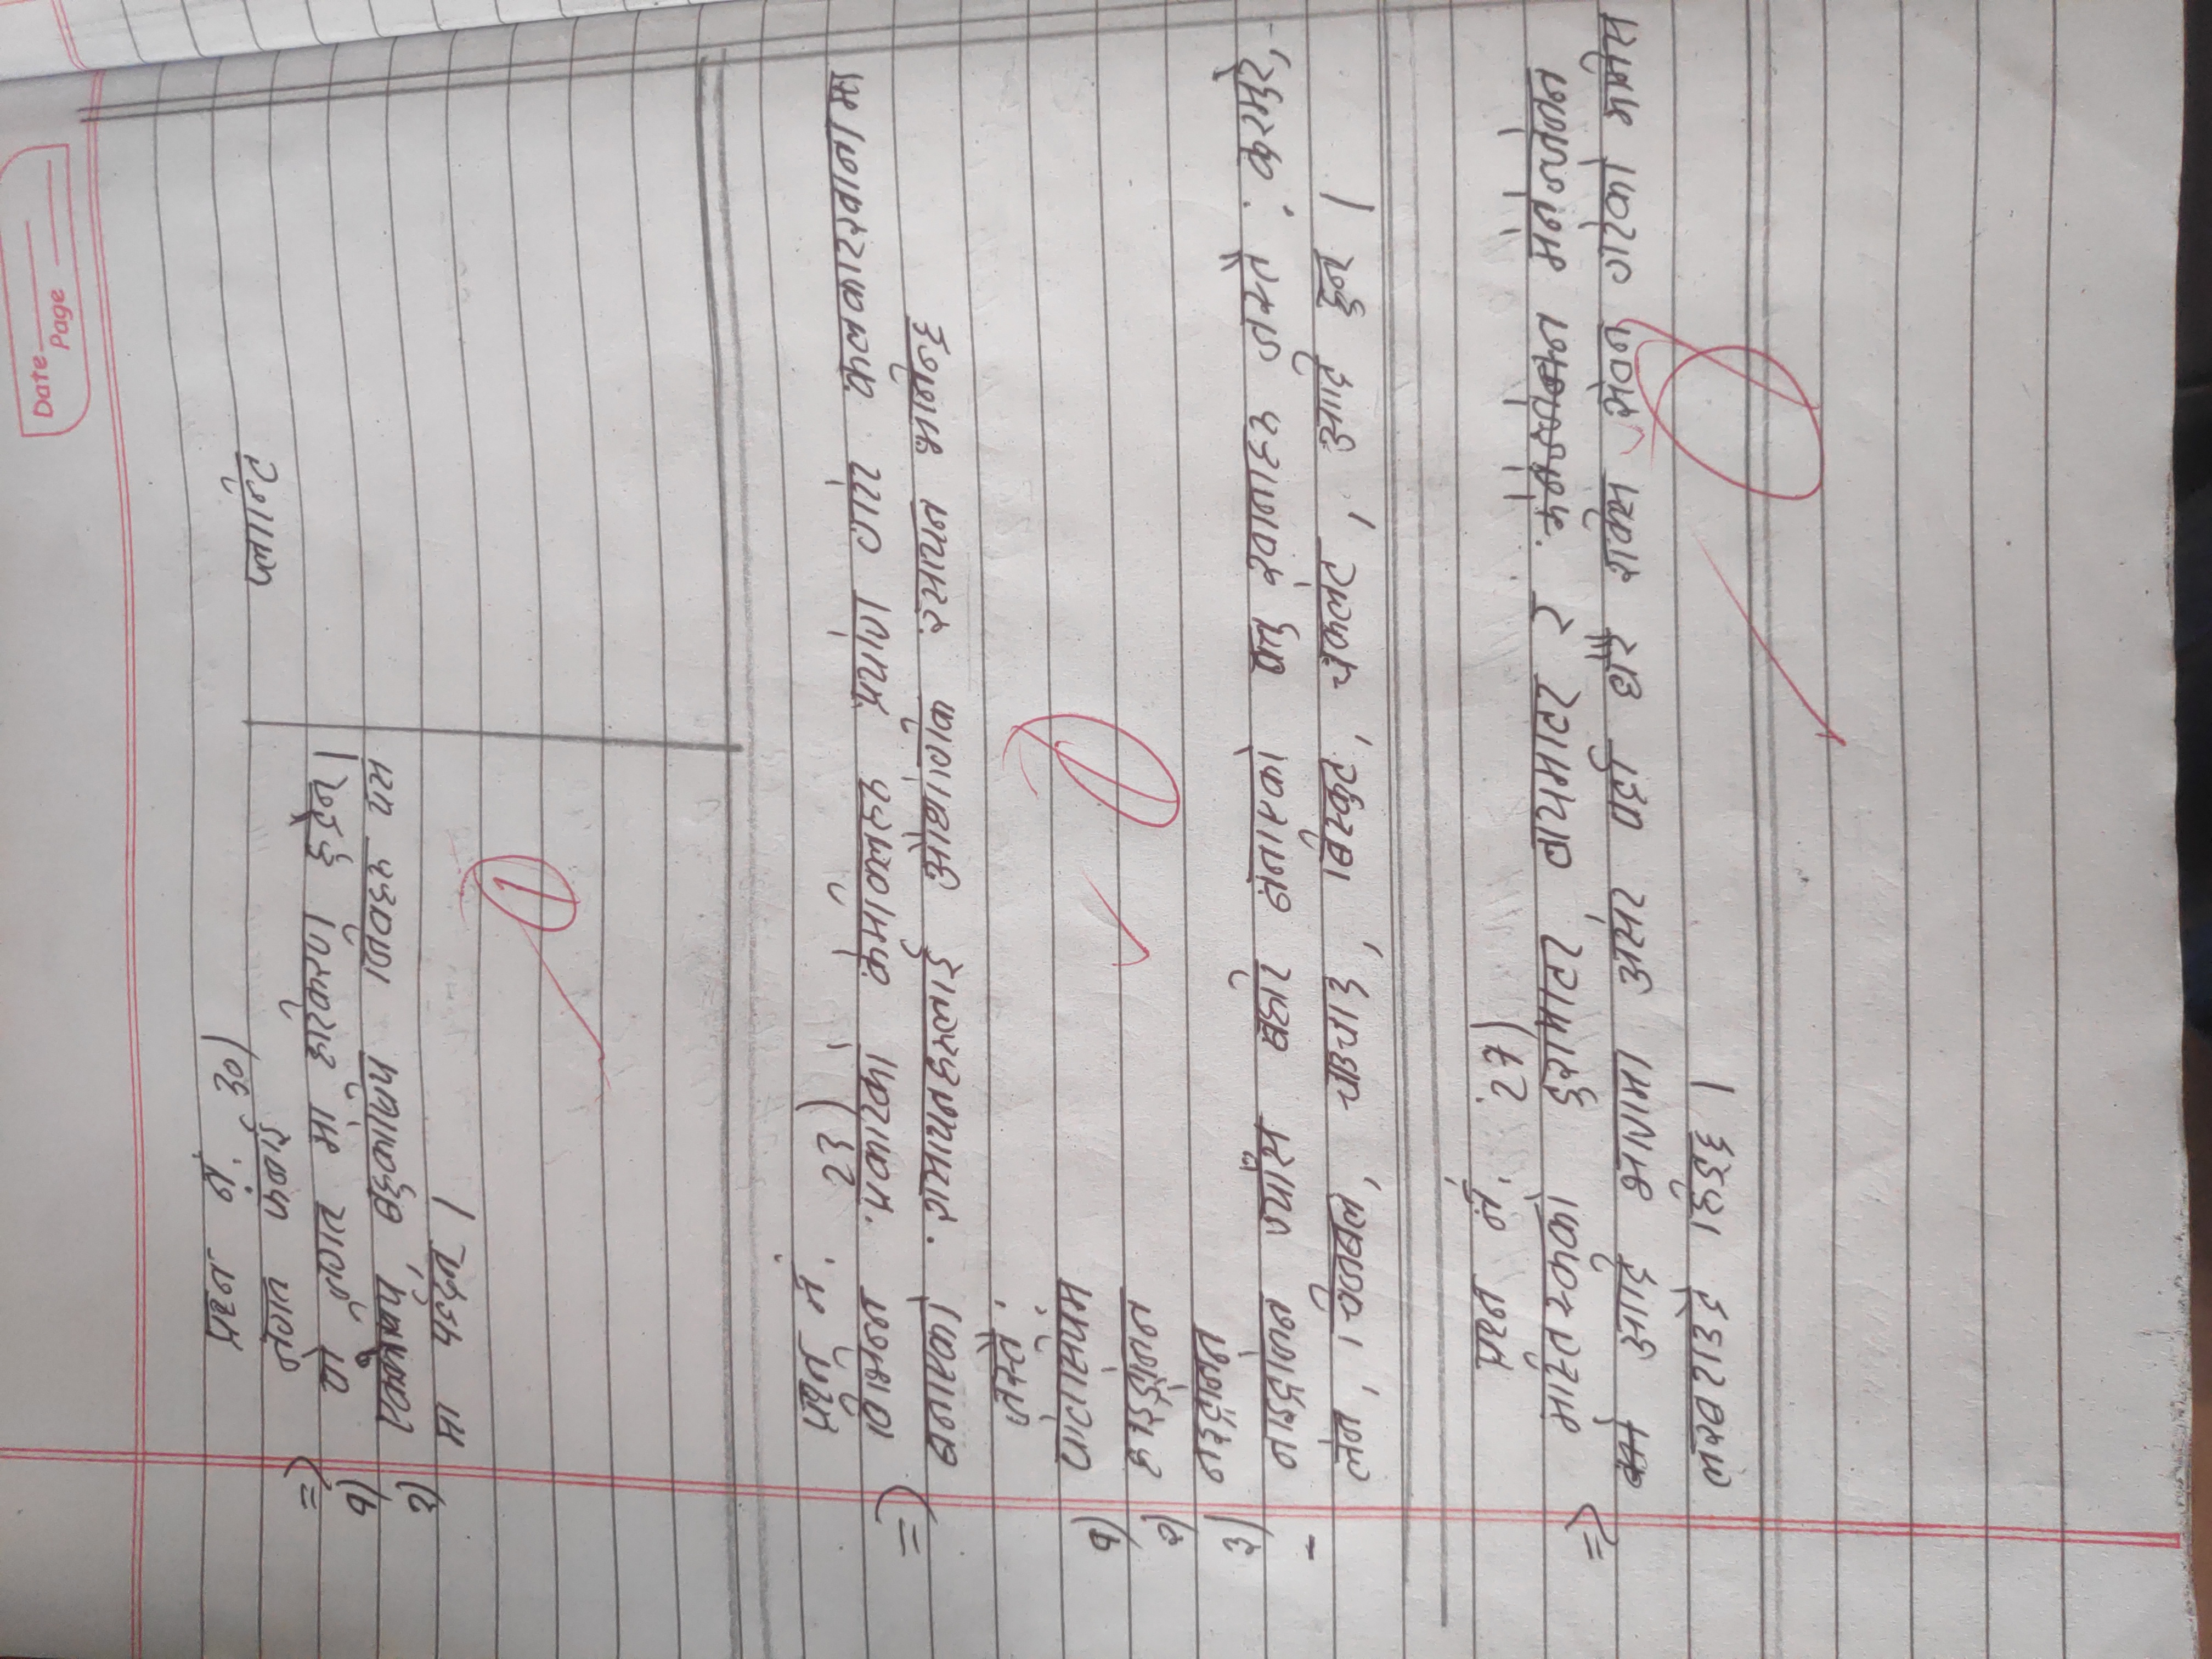 Date
Page
प्रश्न नं. 30)
=) जगत फंजाई
प्लान्टि
१) यो जगत मा हरितकरण हुदैन।
२) एककोषिय, बहुकोषिय जिवहरु यस
मा पर्ददैन् ।
1
प्रश्न नं. 23)
=) विभिन्न प्रकारको केमीकलहरु प्रयोग गरेर कलकारखानामा
बनाएको रासायनहरुलाई औधोगिक रसायन भनिन्छ
जस्तै:
१) पोटासियम
२) हाइड्रोजन
३) नइट्रोजन
- नाइट्रोजन ग्याँस बहेर बनाएको पत्तु खानाहरु जस्तै: कुरमुरे,
लेज, चिजबल, चाउचाउ, बिस्कुट, चकलेट, आदि हुन् ।
1
प्रश्न नं. 27)
=) मस्तिस्कको डुरामाटर, वायमाटर र मेनेन्जेजन
आदि भागमा असर पर्दा धेरै राक्सि सेवन गरेको मानिस
लरखराउदै हिड्छ ।